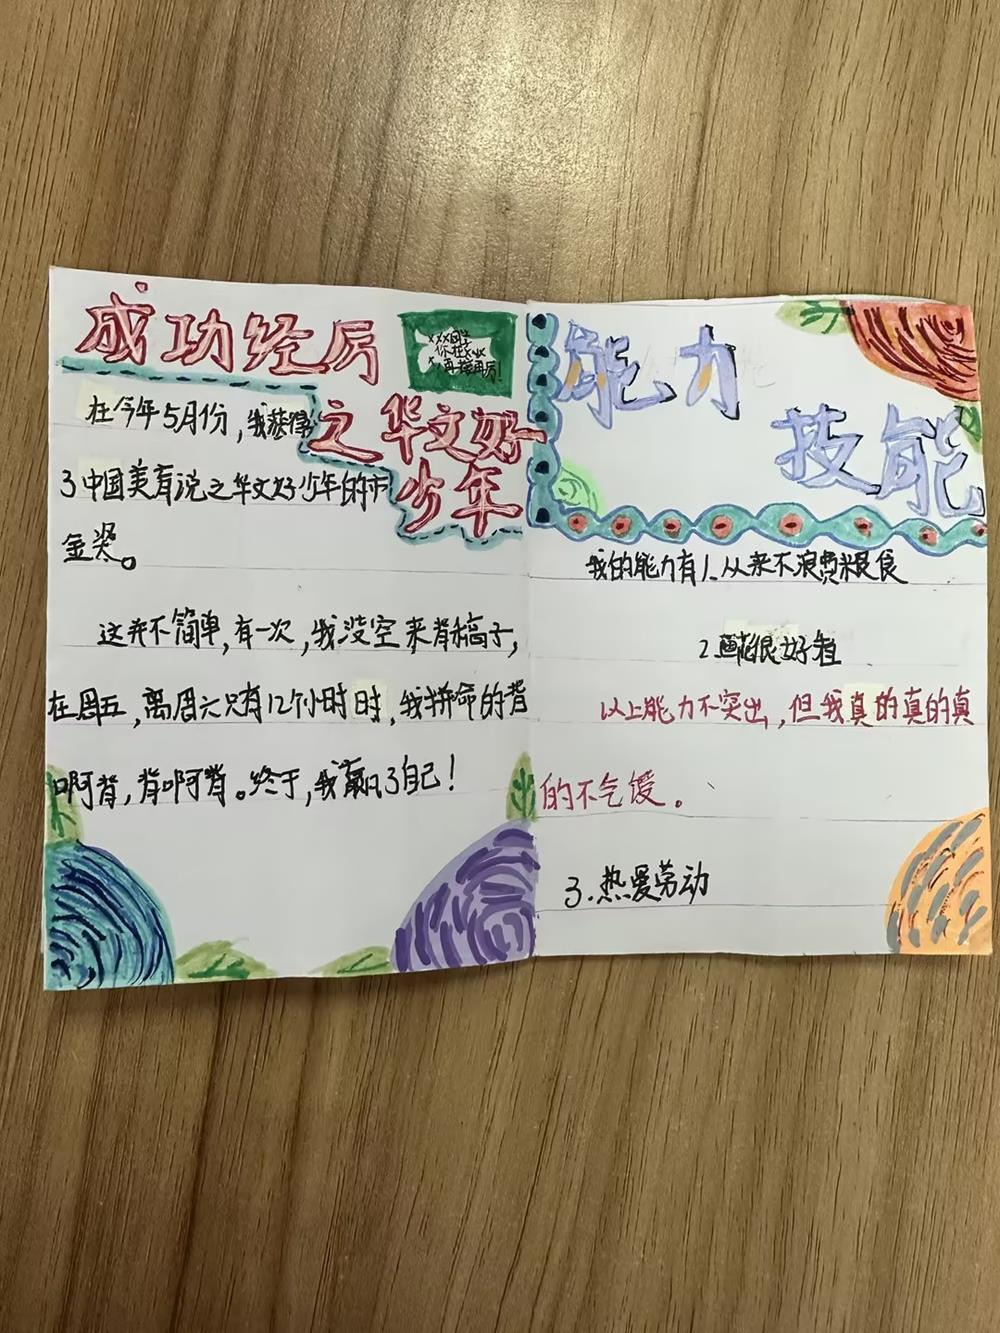 成功经厉
×××同学
你在×××
再接再厉!
之华文好
少年
在今年5月份,我获得
了中国美育说之华文好少年的市
金奖。
这并不简单,有一次,我没空来背稿子,
在周五,离周六只有12个小时时,我拼命的背
啊背,背啊背。终于,我赢了自己!
能力
技能
我的能力有1.从来不浪费粮食
2.画很好
以上能力不突出,但我真的真的真
的不气馁。
3.热爱劳动